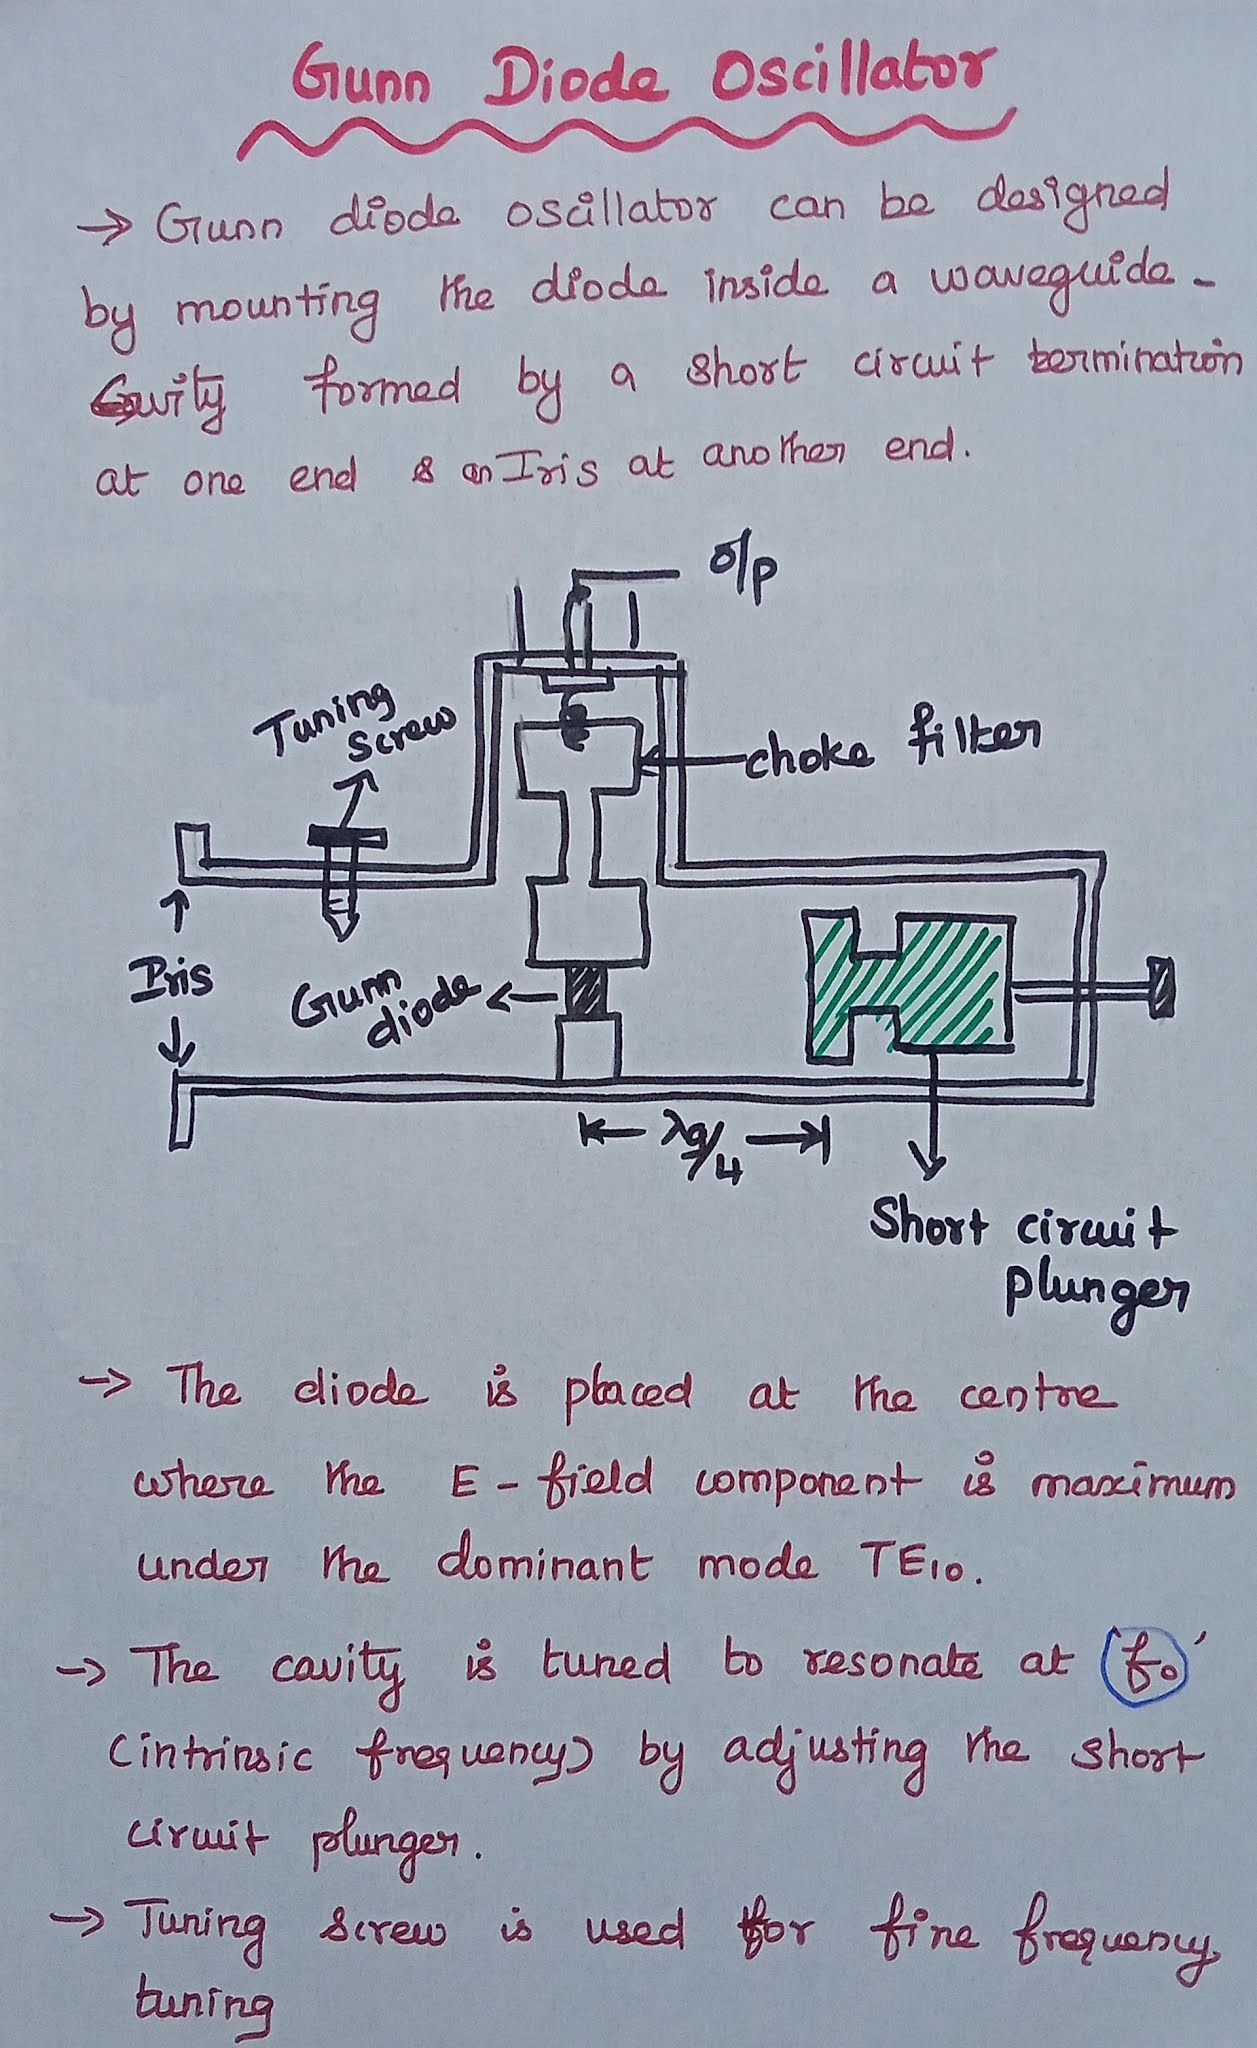 Gunn Diode Oscillator
→ Gunn diode oscillator can be designed
by mounting the diode inside a waveguide -
Cavity formed by a short circuit termination
at one end & an Iris at another end.
o/p
Tuning
screw
choke filter
Iris
Gunn
diode
λg/4
Short circuit
plunger
→ The diode is placed at the centre
where the E - field component is maximum
under the dominant mode TE10.
→ The cavity is tuned to resonate at 'f0'
(intrinsic frequency) by adjusting the short
circuit plunger.
→ Tuning screw is used for fine frequency
tuning